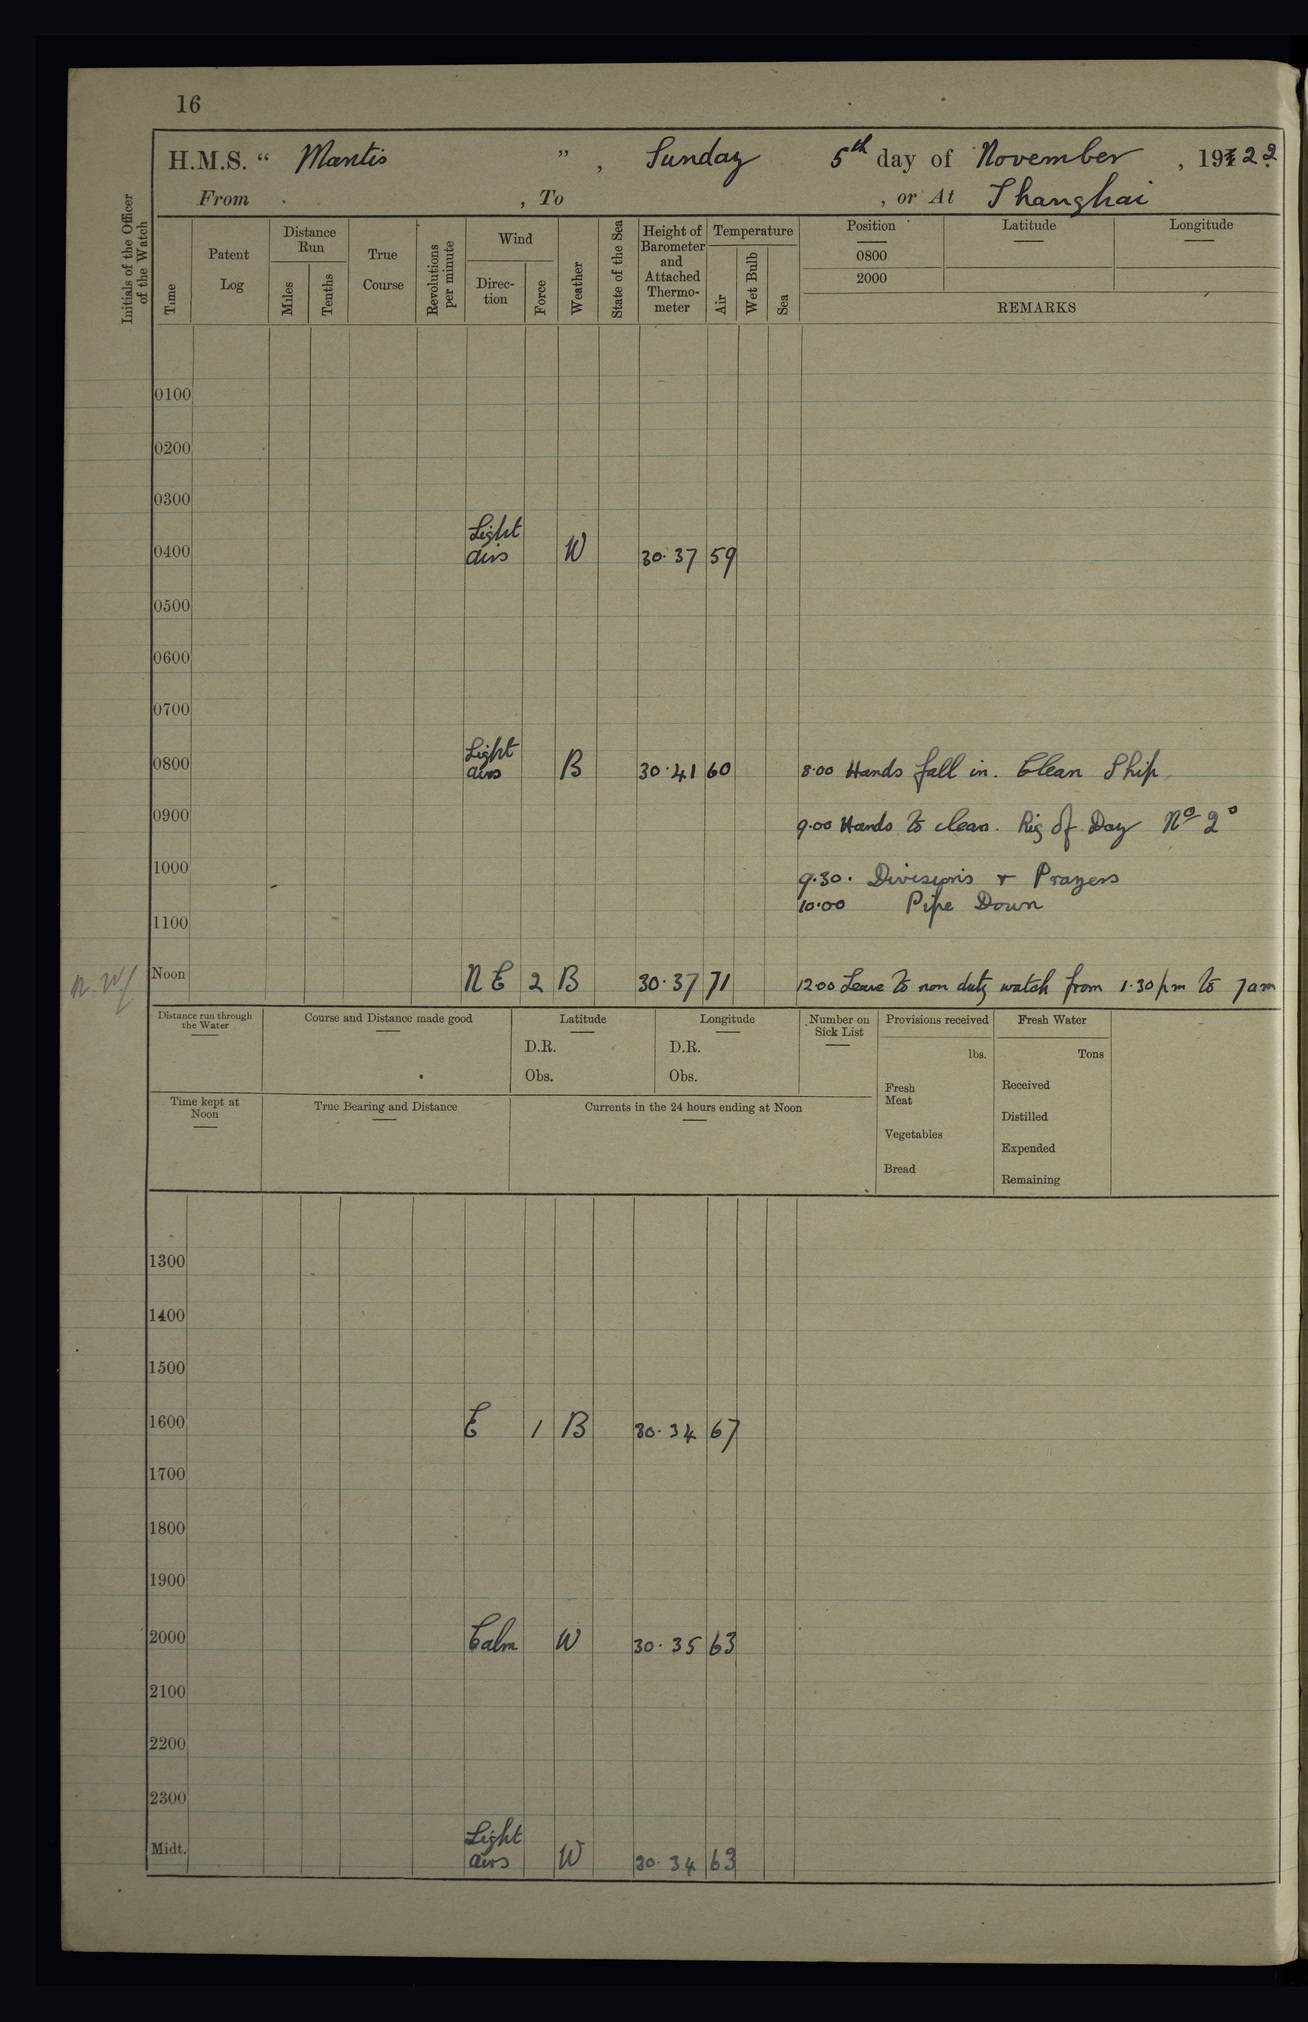 16
H.M.S. “ Mantis ” , Sunday 5th day of November , 1922
From , To , or At Shanghai
Initials of the Officer of the Watch
Time
Patent Log
Distance Run
Miles
Tenths
True Course
Revolutions per minute
Wind
Direc-tion
Force
Weather
State of the Sea
Height of Barometer and Attached Thermo-meter
Temperature
Air
Wet Bulb
Sea
Position
0800
2000
Latitude
Longitude
REMARKS
0100
0200
0300
0400 Light airs W 30.37 59
0500
0600
0700
0800 Light airs B 30.41 60 8.00 Hands fall in. Clean Ship
0900 9.00 Hands to clean. Rig of Day No 2º
1000 9.30. Divisions + Prayers
10.00 Pipe Down
1100
Noon N E 2 B 30.37 71 12.00 Leave to non duty watch from 1.30 pm to 7am
Distance run through the Water
Course and Distance made good
Latitude
D.R.
Obs.
Longitude
D.R.
Obs.
Number on Sick List
Provisions received
lbs.
Fresh Meat
Vegetables
Bread
Fresh Water
Tons
Received
Distilled
Expended
Remaining
Time kept at Noon
True Bearing and Distance
Currents in the 24 hours ending at Noon
1300
1400
1500
1600 E 1 B 30.34 67
1700
1800
1900
2000 Calm W 30.35 63
2100
2200
2300
Midt. Light airs W 30.34 63